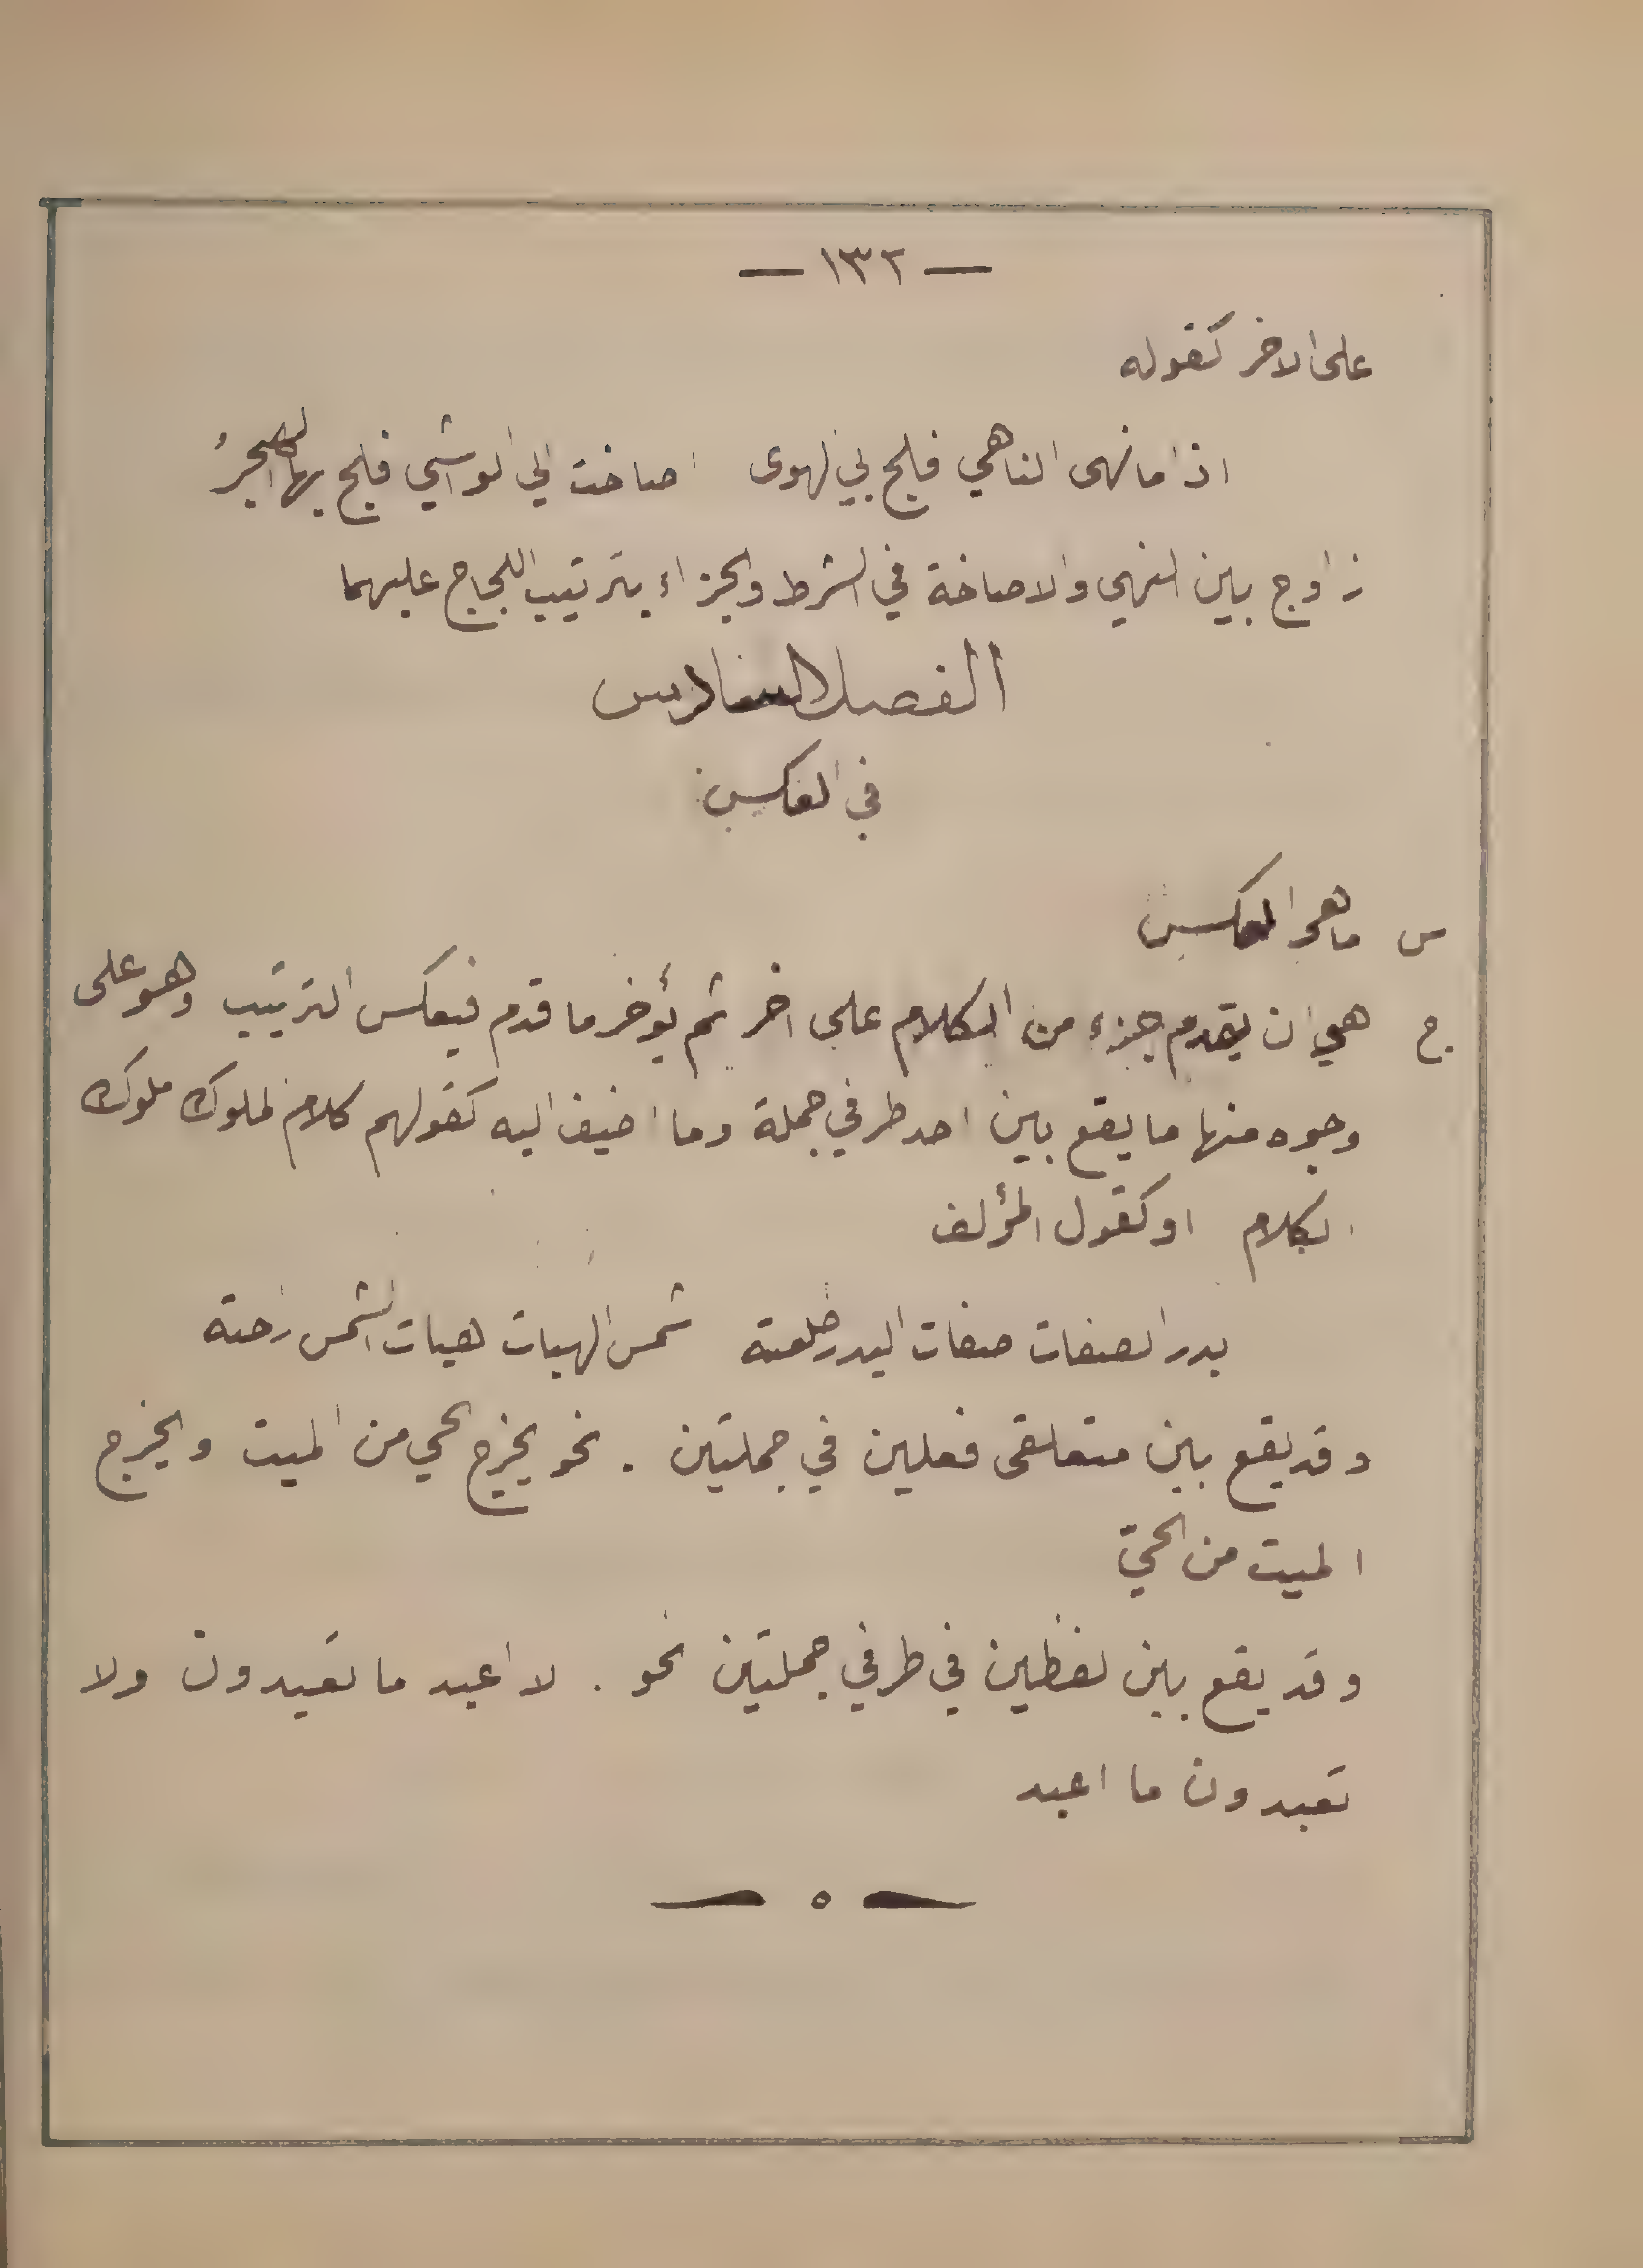 — ١٣٢ —
على الاخر كقوله
اذا ما نهى الناهي فلج بي الهوى اصاخت الي الواشي فلج بها الهجرُ
زاوج بين النهي والاصاخة في الشرط والجزاء بترتيب اللجاج عليهما
الفصل السادس
في العكس
س ما هو العكس
ج هو ان يقدم جزء من الكلام على اخر ثم يؤخر ما قدم فيعكس الترتيب وهو على
وجوه منها ما يقع بين احد طرفي جملة وما اضيف اليه كقولهم كلام الملوك ملوك
الكلام او كقول المؤلف
بدر الصفات صفات البدر طلعته شمس الهبات هبات الشمس راحته
وقد يقع بين متعلقى فعلين في جملتين . نحو يخرج الحي من الميت ويخرج
الميت من الحيّ
وقد يقع بين لفظين في طرفي جملتين نحو . لا اعبد ما تعبدون ولا
تعبدون ما اعبد